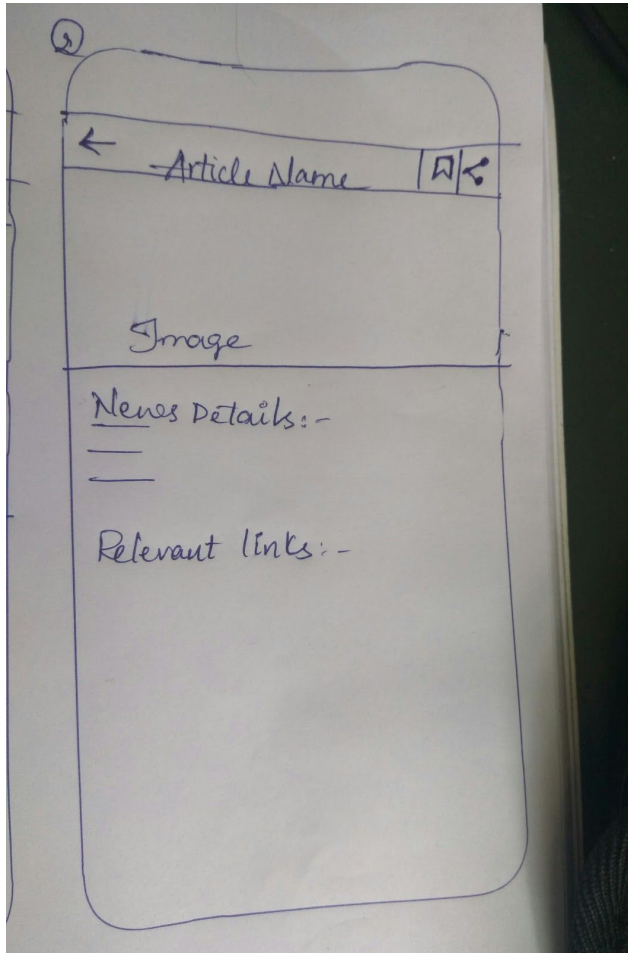 2
Article Name
Image
News Details:-
Relevant links:-